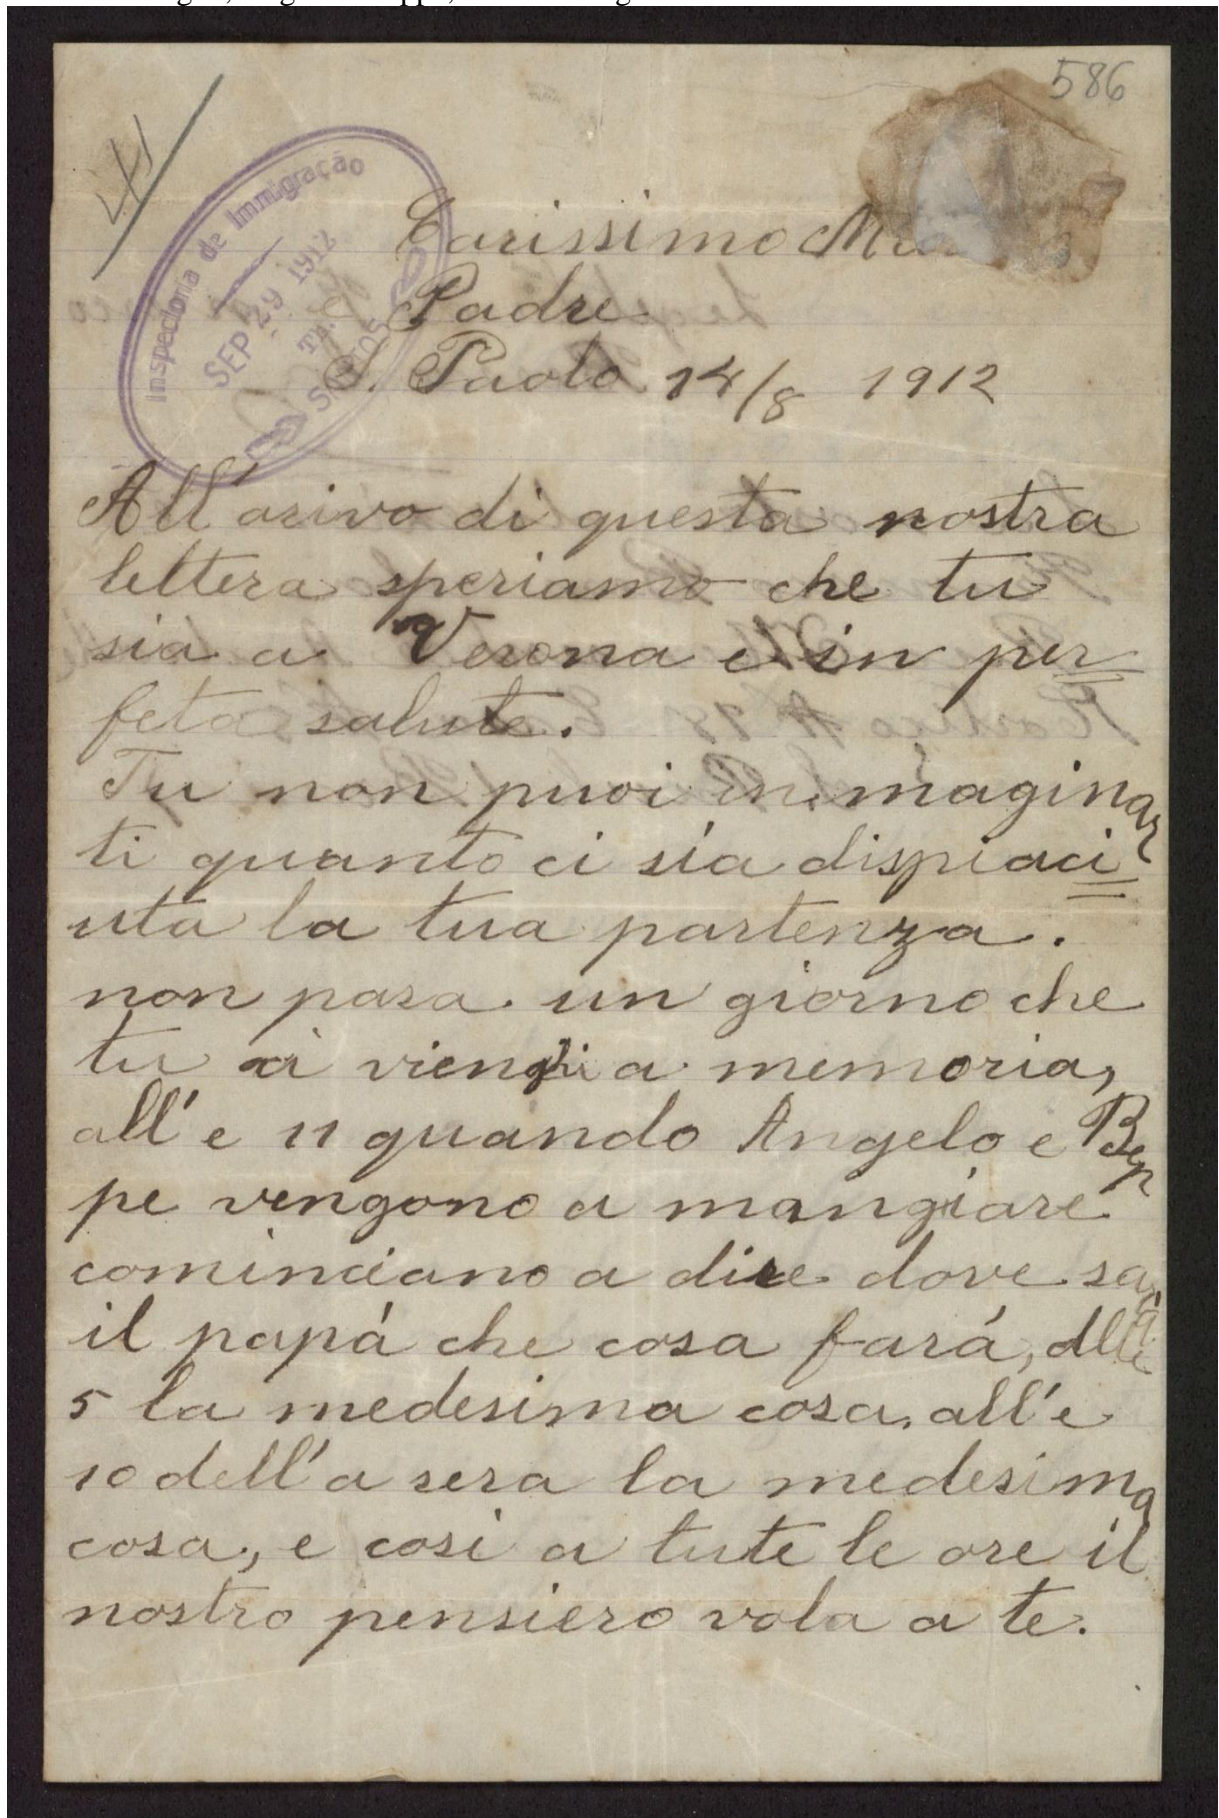 586
Inspectoria de Immigração
SEP 29 1912
SANTOS
Carissimo
Padre
S. Paolo 14/8 1912
All'arivo di questa nostra
lettera speriamo che tu
sia a Verona e in per
feta salute.
Tu non puoi inmaginar
ti quanto ci sia dispiaci
uta la tua partenza.
non pasa un giorno che
tu ci vienghi a memoria,
all'e 11 quando Angelo e Bep
pe vengono a mangiare
cominciano a dire dove sará
il papá che cosa fará, alle
5 la medesima cosa, all'e
10 dell'a sera la medesima
cosa, e cosi a tute le ore il
nostro pensiero vola a te.